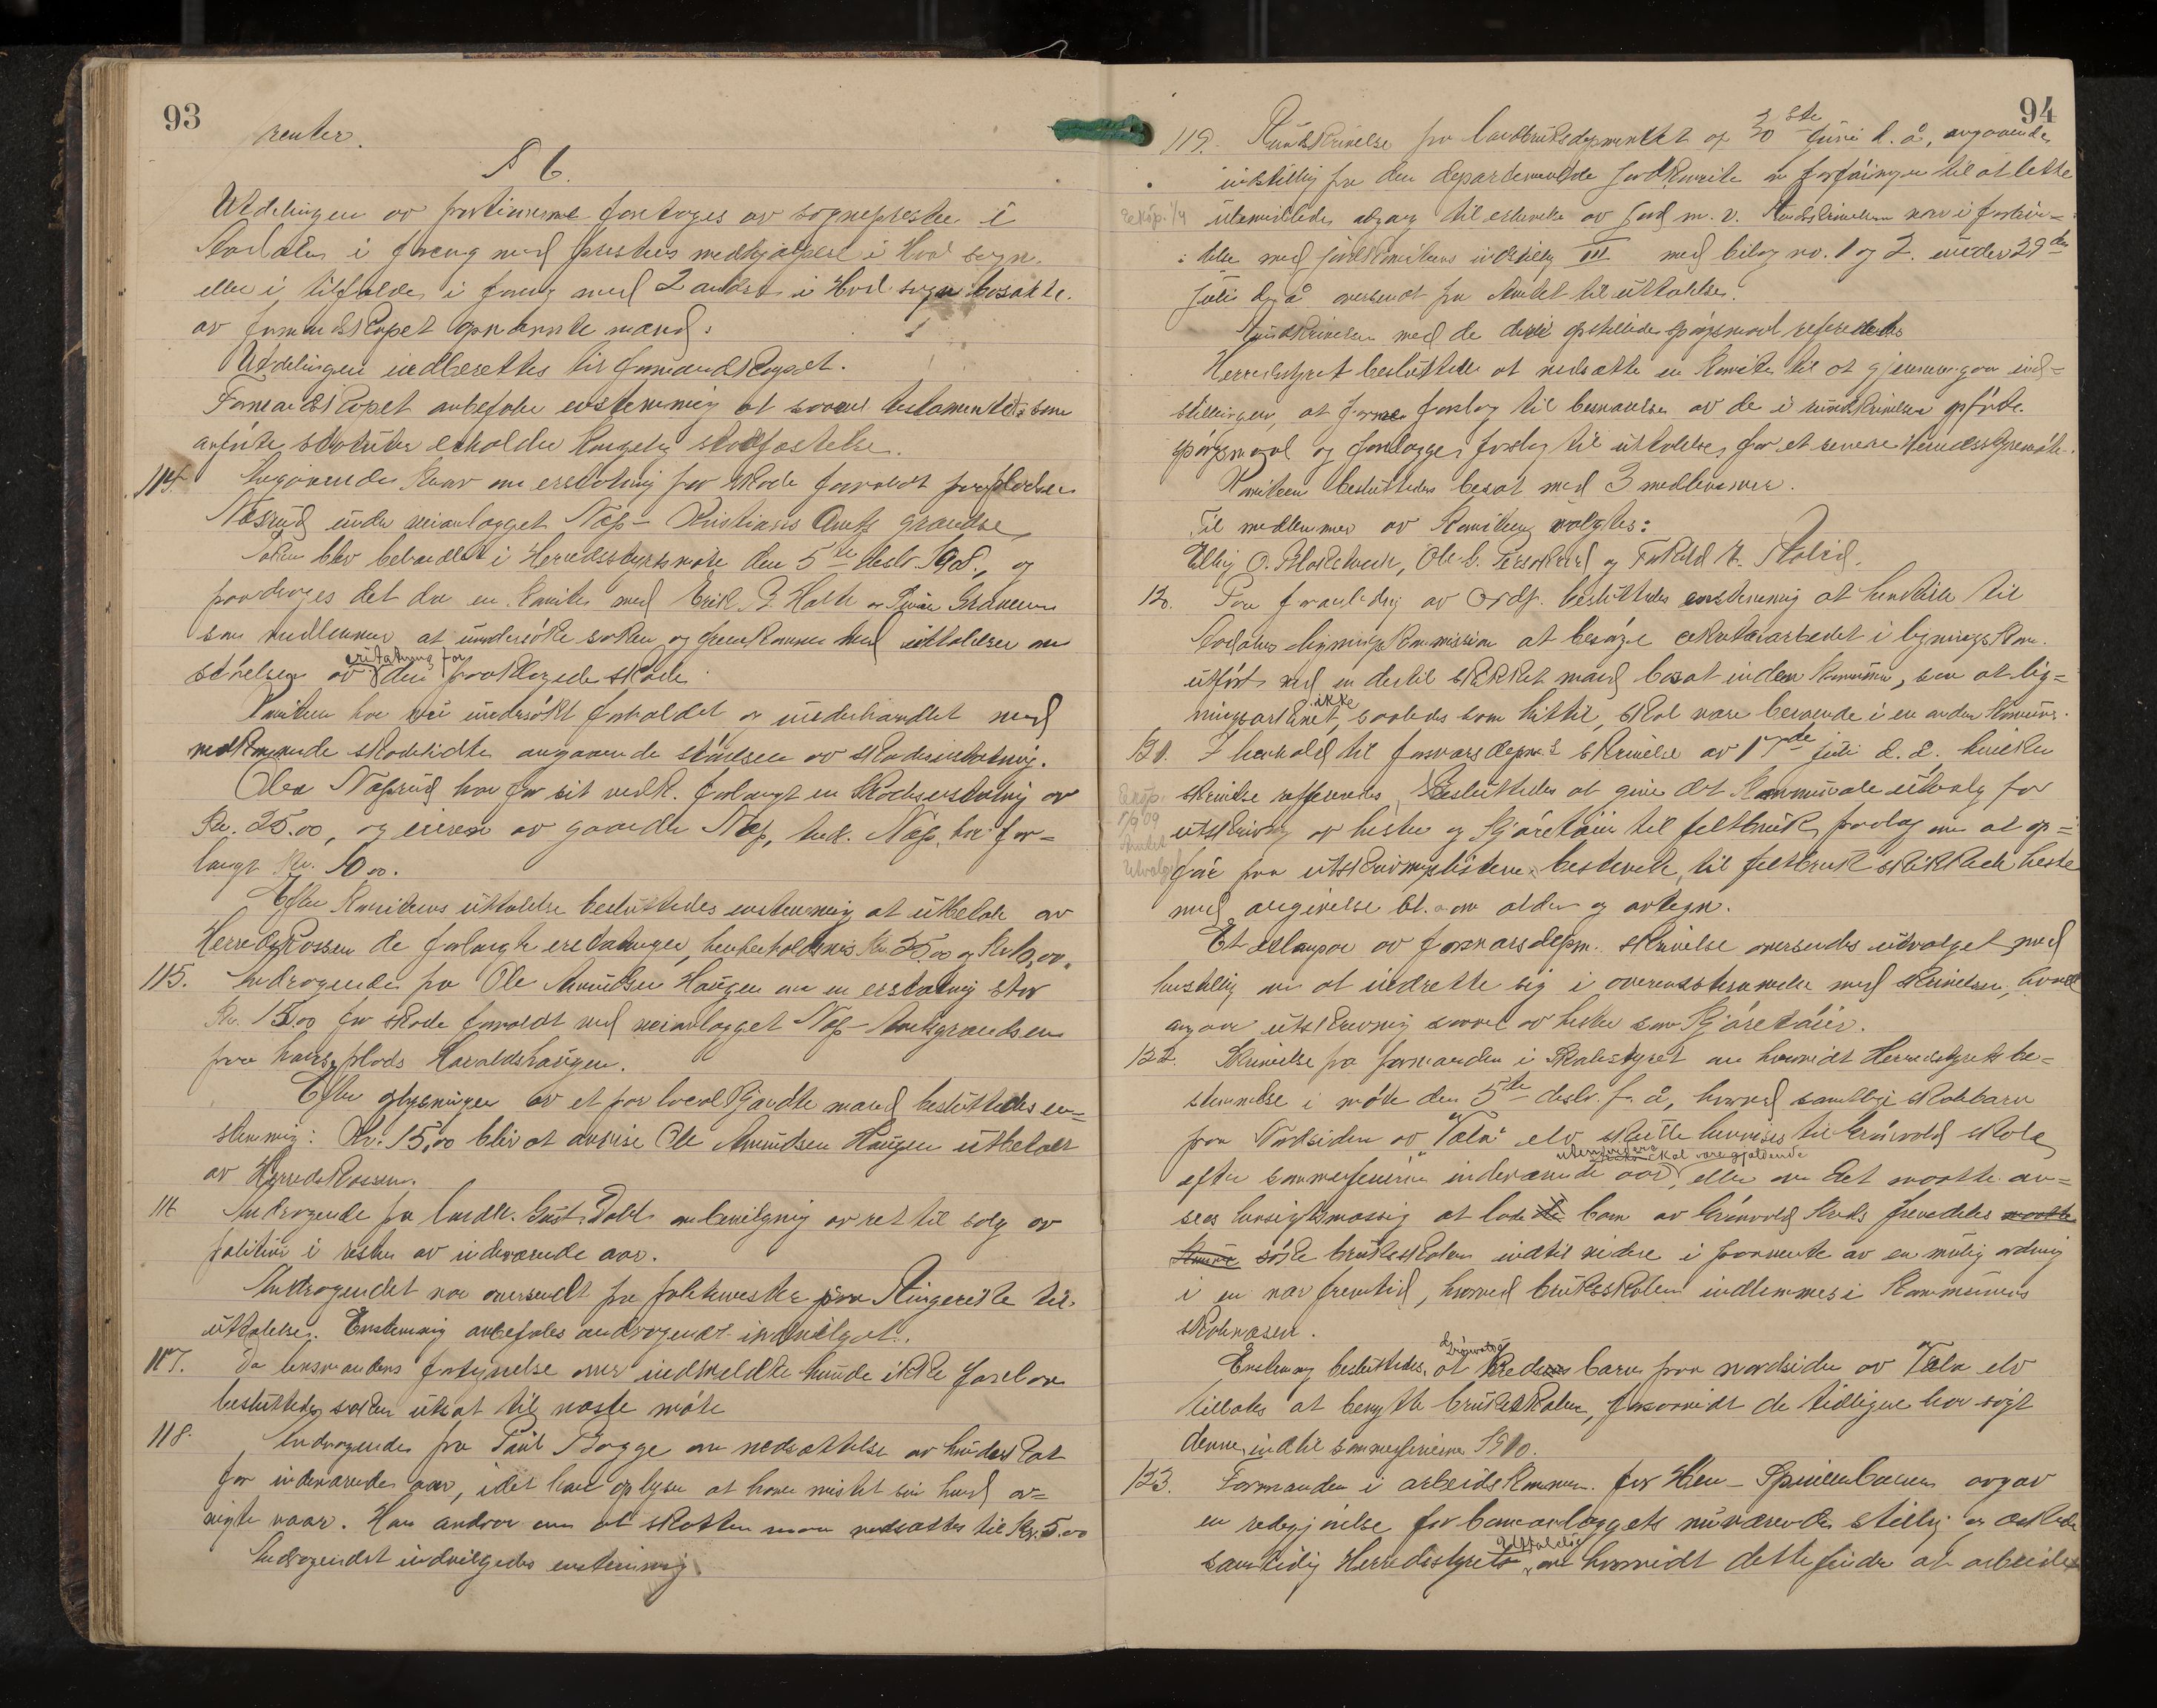 93
renter.
§ 6.
Utdelingen av portionerne foretages av sognepresten i
Aadalen i forening med prestens medhjælpere i Hval sogn.
eller i tilfælde i forening med 2 andre i Hval sogn bosatte
av formandskapet opnævnte mænd.
Utdelingen indberettes til formandskapet.
Formandskapet anbefaler enstemmig at saavel testamentet som
anførte statuter erholder kongelig stadfæstelse.
114. Angaaende krav om erstatning for skade forvoldt paa pladsen
Næsrud under veianlægget Næs - Kristians Amts grændse,
Saken blev behandlet i Herredsstyrets møte den 5te decbr. 1908, og
paadroges det da en komite med Erik B. Halte og Iver Granum
som medlemmer at undersøke saken og fremkomme med uttalelse om
størrelsen av erstatning for den paaklagede skade.
Komiteen har nu undersøkt forholdet og underhandlet med
vedkommende skadelidte angaaende størrelsen av skadeserstatning.
Olea Næsrud har for sit vedk. forlangt en skadeserstatning av
Kr. 25.00, og eieren av gaarden Næs, And. Næs, har for-
langt Kr. 10.00.
Efter komiteens uttalelse besluttedes enstemmig at utbetale av
Herredskassen de forlangte erstatninger, henholdsvis Kr. 25.00 og Kr. 10.00.
115. Andragende fra Ole Amundsen Haugen om en erstatning stor
Kr. 15.00 for skade forvoldt ved veianlægget Næs - Amtsgrændsen
paa hans plads Haraldshaugen.
Efter oplysninger av et par lokalkjendte mænd besluttedes en-
stemmig: Kr. 15.00 blir at anvise Ole Amundsen Haugen utbetalt
av Herredskassen.
116 Andragende fra landh. Gust. Dahl om bevilgning av ret til salg av
i resten av indeværende aar.
Andragendet var oversendt fra politimester paa Ringerike til
uttalelse. Enstemmig anbefales andragendet indvilget.
117. Da lensmandens fortegnelse over indmeldte hunde ikke forelaa
besluttedes saken utsat til næste møte
118. Andragende fra Paul Bagge om nedsættelse av hundeskat
for indeværende aar, idet han oplyser at have mistet sin hund av-
vigte vaar. Han andrar om at skatten maa nedsættes til Kr. 5.00
Andragendet indvilgedes enstemmig.
94
119. Rundskrivelse fra landbruksdepartementet av 30te juni d. å, angaaende
indstilling fra den departementale jordkomite om forføininger til at lette
ubemidledes adgang til erhvervelse av jord m. v. Rundskrivelsen var i forbin-
delse med jordkomiteens indstilling III med bilag no. 1 og 2. under 29de
juli d. å oversendt fra Amtet til uttalelse.
Rundskrivelsen med de deri opstillede spørgsmaal refereredes
Herredsstyret besluttede at nedsætte en komite til at gjennemgaa ind-
stillingen, at forme forslag til besvarelse av de i rundskrivelsen opførte
spørgsmaal og forelægge forslag til uttalelse for et senere Herredsstyremøte.
Komiteen besluttedes besat med 3 medlemmer.
Til medlemmer av komiteen valgtes:
Elling O. Blakstvedt, Ole C. og
120. Paa foranledning av Ordf. besluttedes enstemmig at henstille til
Aadalens ligningskommission at besørge sekretærarbeidet i ligningskom.
utført ved en dertil skikket mand bosat inden kommunen, saa at lig-
ningsarkivet ikke, saaledes som hittil, skal være beroende i en anden kommune.
121. I henhold til forsvarsdepm.s skrivelse av 17de juli d. å. hvilken
skrivelse refereredes, besluttedes at give det kommunale utvalg for
utskrivning av heste og kjøretøier til feltbruk paalæg om at op-
føre paa utskrivningslisterne bestemte, til feltbruk skikkede heste
med angivelse bl. a. om alder og avtegn.
Et exemplar av forsvarsdepm. skrivelse oversendes utvalget med
henstilling om at indrette sig i overensstemmelse med skrivelsen, hvad
angaar utskrivning saavel av heste som kjøretøier.
122. Skrivelse fra formanden i skolestyret om hvorvidt Herredsstyrets be-
stemmelse i møte den 5te decbr. f. å, hvorved samtlige skolebarn
paa Nordsiden av "Væla" elv skulle henvises til Grønvold skole
efter sommerferierne indeværende aar utenvidere skal være gjældende, eller om det maatte an-
sees hensigtsmæssig at lade de barn av Grønvold kreds fremdeles maatte
kunne søke bruksskolen indtil videre i paavente av en mulig ordning
i en nær fremtid, hvorved bruksskolen indlemmes i kommunens
skolevæsen.
Enstemmig besluttedes, at Grønvold kreds barn paa nordsiden av Væla elv
tillates at benytte bruksskolen, forsaavidt de tidligere har søgt
denne, indtil sommerferierne 1910.
123. Formanden i arbeidskommn. for Hen - Spirillenbanen avgav
en redegjørelse for baneanlæggets nuværende stilling og æskede
samtidig Herredsstyrets uttalelse, om hvorvidt dette finder at arbeidet